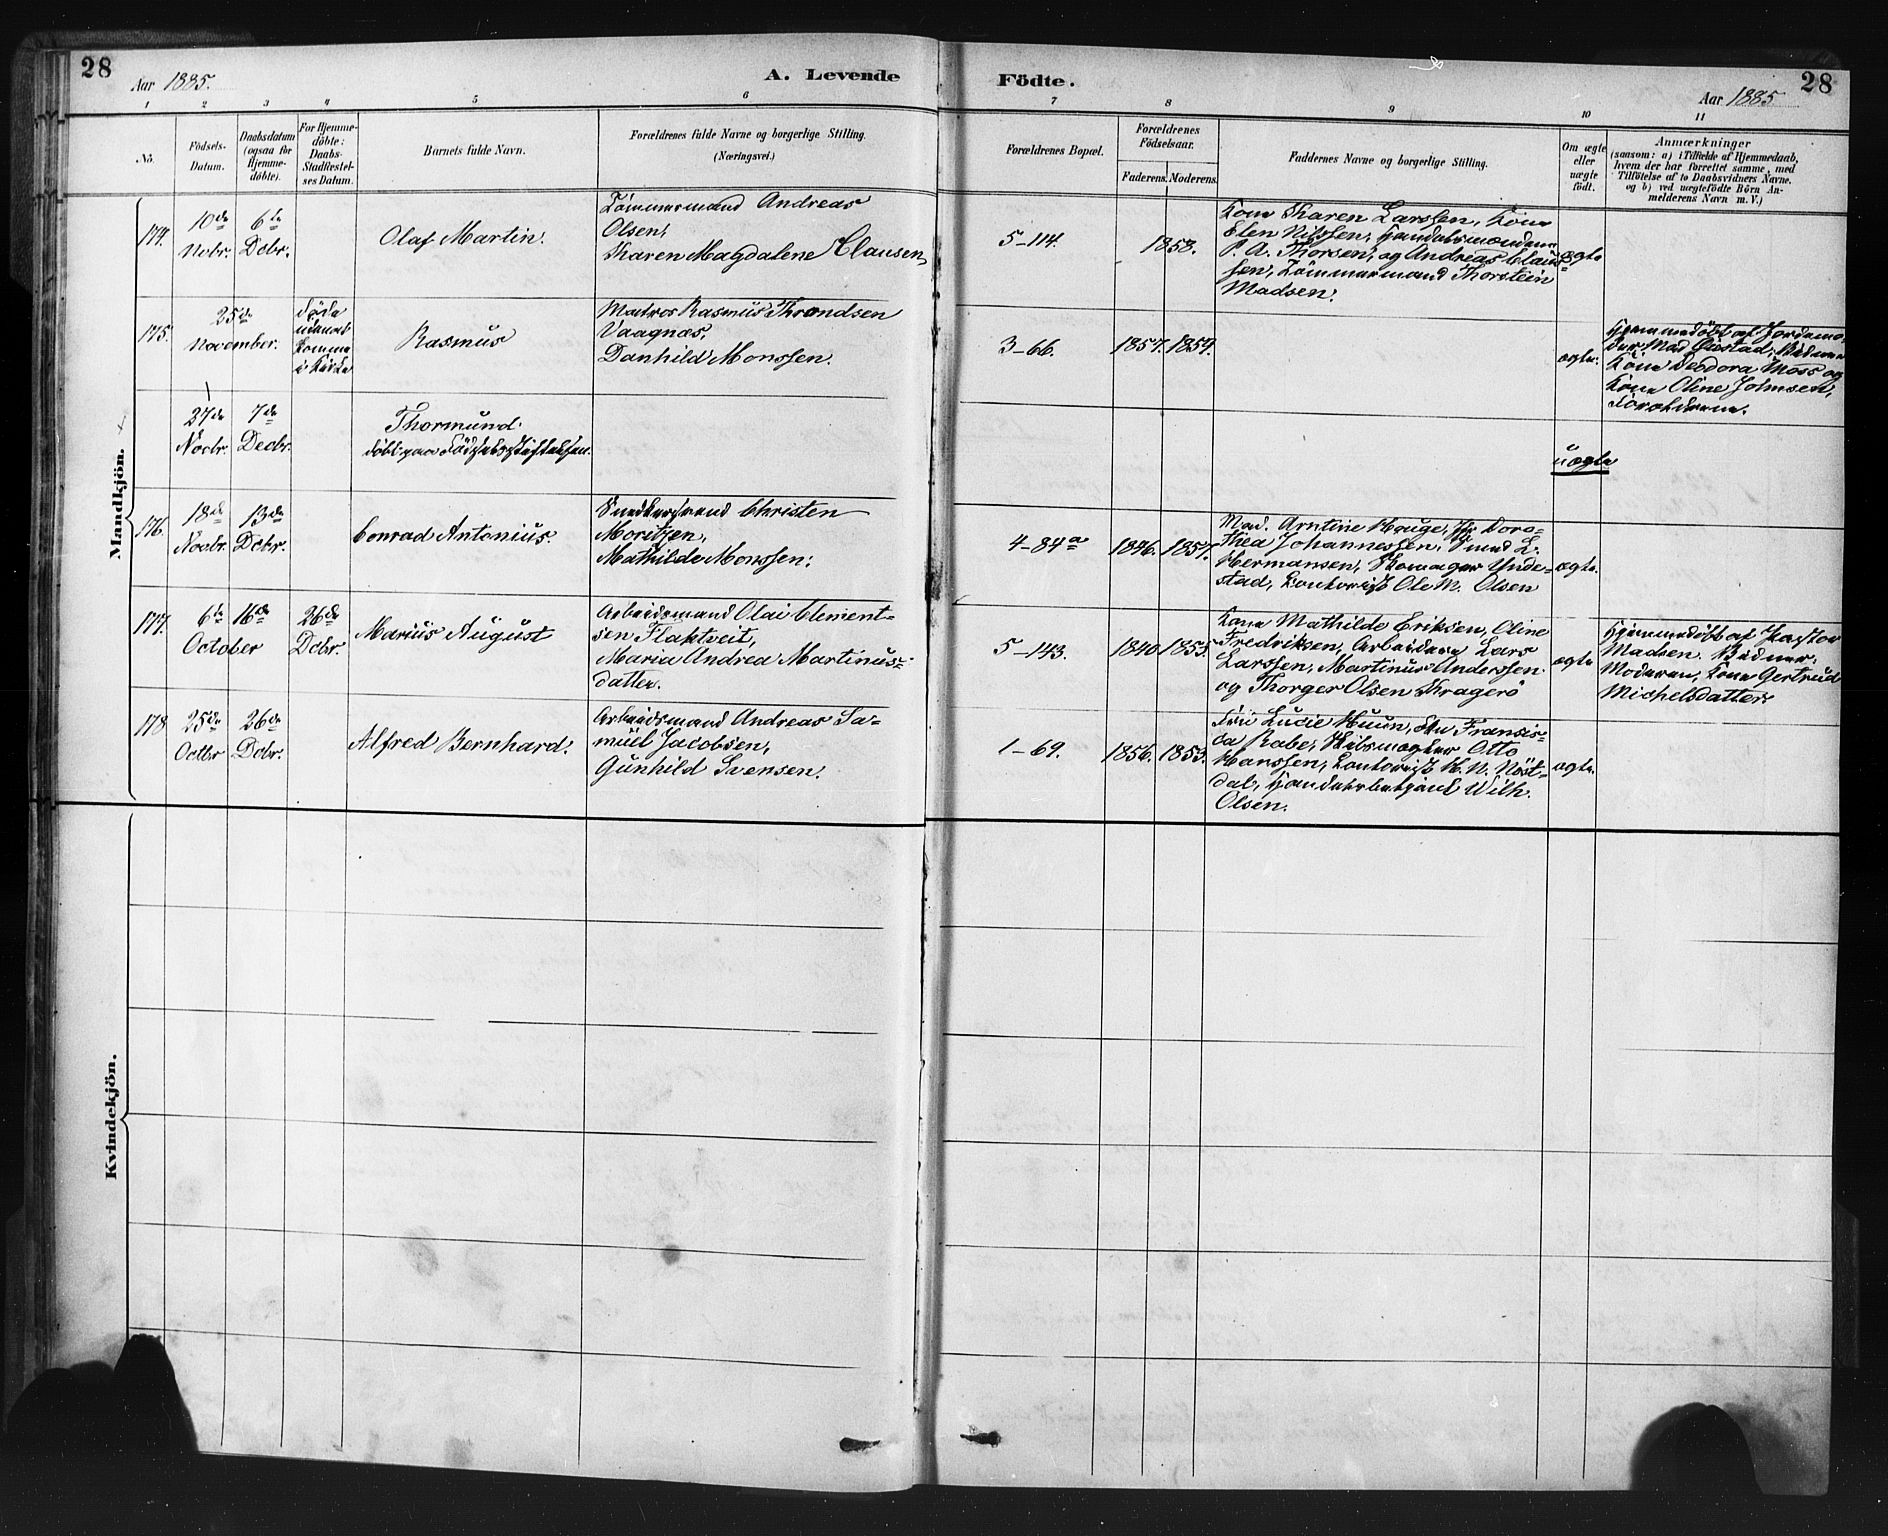 28
Aar 1885.
A. Levende
Födte.
Aar 1885
28
1 2 3 4 5 6 7 8 9 10 11
No.
Födsels-
Datum.
Daabsdatum
(ogsaa for
Hjemme-
döbte).
For Hjemme-
döbte:
Daabs-
Stadfæstel-
ses Datum.
Barnets fulde Navn.
Forældrenes fulde Navne og borgerlige Stilling.
(Næringsvei.)
Forældrenes Bopæl.
Forældrenes
Födselsaar.
Faderens. Moderens.
Faddernes Navne og borgerlige Stilling.
Om ægte
eller
uægte
født.
Anmærkninger
(saasom: a) i Tilfælde af Hjemmedaab,
hvem der har forrettet samme, med
Tilföielse af to Daabsvidners Navne.
og b) ved uægtefödte Börn An-
melderens Navn m. V.)
Mandkjön.
174.
10de
Nobr.
6te
Dcbr.
Olaf Martin.
Tömmermand Andreas
Olsen,
Karen Magdalene Clausen,
5-114.
1858.
Kone Karen Larssen, Kone
Elen Nilssen, Handelsmændene
P. A. Thorsen, og Andreas Claus-
sen, Tömmermand Thorstein
Madsen.
ægte
175.
25de
November.
döde
uden at
komme
i Kirke
Rasmus
Matros Rasmus Throndsen
Vaagnæs,
Danhild Monssen.
3-66.
1857. 1859.
ægte.
Hjemmedöbt af Jordemo-
der Mad. Vidner
Kone Deodora Moss og
Kone Oline Johnsen,
Forældrene.
27de
Nocbr.
7de
Decbr.
Thormund.
döbt paa Födselsstiftelsen.
uægte
176.
18de
Novbr.
13de
Dcbr.
Conrad Antonius.
Christen
Moritzen,
Mathilde Monssen.
4-84a
1846. 1857.
Mad. Arntine Hauge, Doro-
thea Johannessen, Smed L.
Hermansen, Skomager Ynde-
stad, Kontorist Ole M. Olsen
ægte.
177.
6te
October
16de
26de
Dcbr.
Marius August
Arbeidsmand Olai Clement-
sen Flaktveit,
Maria Andrea Martinus-
datter.
5-143.
1840. 1855.
Kone Mathilde Eriksen, Oline
Fredriksen, Arbeiderne Lars
Larssen, Martinus Anderssen
og Thorger Olsen Kragerö
ægte
Hjemmedöbt af Pastor
Madsen. Vidner:
Moderen, Kone Gertrud
Michelsdatter.
178
25de
Octbr
26de
Dcbr.
Alfred Bernhard.
Arbeidsmand Andreas Sa-
muel Jacobsen,
Gunhild Svensen.
1-69.
1856. 1853.
Frü Lucie Huun, Fru Fransis-
ca Rabe, Skibsmægler Otto
Hanssen, Kontorist H. N. Nöst-
dal, Handelsbetjent Wilh.
Olsen.
ægte.
Kvindekjön.